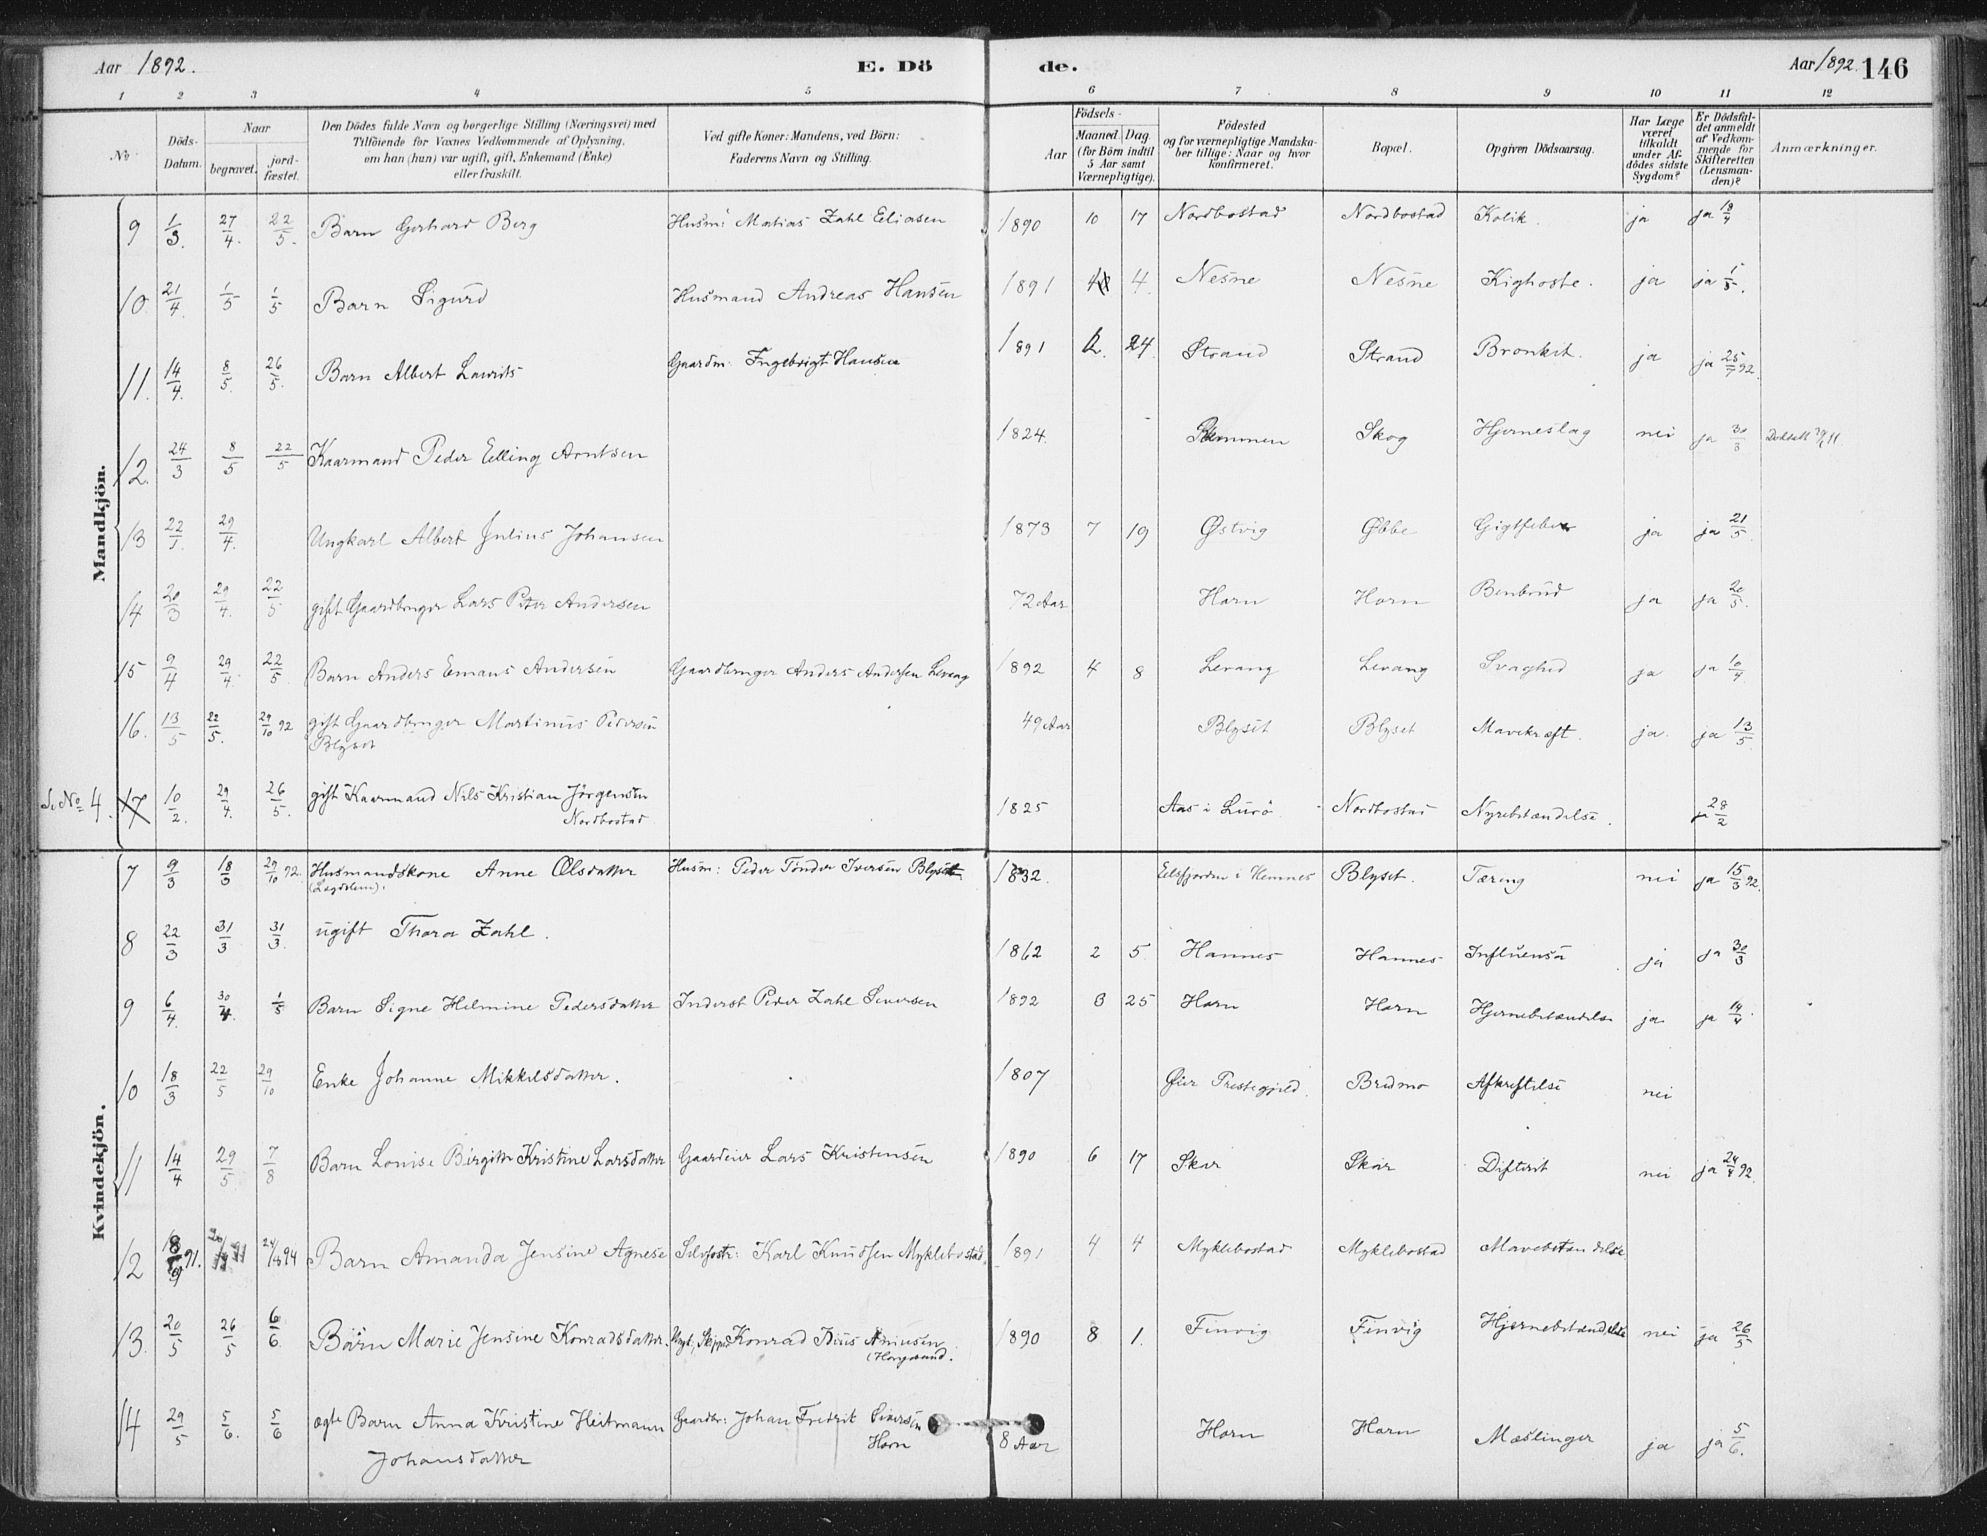 Aar 1892. E. Dö de. Aar 1892. 146
1 2 3 4 5 6 7 8 9 10 11 12
No Döds-Datum. Naar begravet. jord-fæstet. Den Dödes fulde Navn og borgerlige Stilling (Næringsvei) med Tilföiende for Voxnes Vedkommende af Oplysning, om han (hun) var ugift, gift, Enkemand (Enke) eller fraskilt. Ved gifte Koner: Mandens, ved Börn: Faderens Navn og Stilling. Födsels- Aar Maaned. Dag. (for Börn indtil 5 Aar samt Værnepligtige). Födested og for værnepligtige Mandskaber tillige: Naar og hvor konfirmeret. Bopæl. Opgiven Dödsaarsag. Har Læge været tilkaldt under Afdödes sidste Sygdom? Er Dödsfaldet anmeldt af Vedkommende for Skifteretten (Lensmanden)? Anmærkninger.
Mandkjön.
9 1/3. 27/4. 22/5. Barn Gerhard Berg Husm: Matias Zahl Eliasen 1890 10 17 Nordbostad Nordbostad Kolik. ja ja 19/4
10. 21/4. 1/5 1/5 Barn Sigurd Husmand Andreas Hansen 1891 4. Nesne Nesne Kighoste. ja ja
11. 14/4. 8/5. 26/5. Barn Albert Laurits Gaardm: Ingebrigt Hansen 1891 2. 24. Strand Strand Bronkit. ja ja 25/7 92.
12. 24/3 8/5 22/5 Kaarmand Peder Elling Arntsen 1824 Skog Hjerneslag nei ja 30/3
13 22/1. 29/4. Ungkarl Albert Julius Johansen 1873 7 19 Østvig Øbbe Gigtfeber ja ja 21/5
14 20/3 29/4. 22/5 gift Gaardbruger Lars Peter Andersen 72 Aar Horn Horn Benbrud ja ja 20/5.
15 9/4 29/4. 22/5. Barn Anders Emans Andersen Gaardbruger Anders Andersen Levang 1892 4 8 Levang Levang Svaghed ja ja 10/4
16. 13/5 22/5. 29/10 92 gift Gaardbruger Martinus Pedersen 49 Aar Blyset Blyset Mavekræft. ja. ja 13/5.
Blyset
S. No 4. 17 10/2. 29/4. 26/5. gift Kaarmand Nils Kristian Jörgensen 1825 Aas i Lurö Nordbostad Nyrebetændelse. ja 28/2
Nordbostad
Kvindekjön.
7 9/3 18/3 29/10 92. Husmandskone Anne Olsdatter Husm: Peder Tönder Iversen Blyset 1832. Eelsfjorden i Hemnes Blyset. Tæring nei ja 15/3 92.
(Lægdslem).
8 22/3 31/3 31/3. ugift Thora Zahl. 1862 2 5. Hannes Hannes Influensa ja ja 30/3
9 6/4. 30/4. 1/5 Barn Signe Helmine Pedersdatter Inderst Peder Zahl Siversen 1892 3 25 Horn Horn Hjernebetændelse ja ja 19/4.
10 18/3 22/5 29/10 Enke Johanne Mikkelsdatter. 1807 Øier Prestegjeld. Bredmo Afkræftelse nei
11 14/4 29/5 7/8 Barn Louise Birgitte Kristine Larsdatter Gaardeier Lars Kristensen 1890 6 17 Skar Skar Difterit nei ja 24/4 92.
12 91. Barn Amanda Jensine Agnese Selvfostr: Karl Knudsen Myklebostad 1891 4 4 Myklebostad Myklebostad Mavebetændelse
13. 20/5 26/5 6/6. Barn Marie Jensine Konradsdatter. Konrad 1890 8 1. Finvig Finvig Hjernebetændelse nei ja 26/5
14 29/5 5/6. 5/6 ægte Barn Anna Kristine Heitmann Gaardbr: Johan Fredrik Sivertsen 8 Aar Horn Horn Mæslinger ja ja 5/6.
Johansdatter Horn